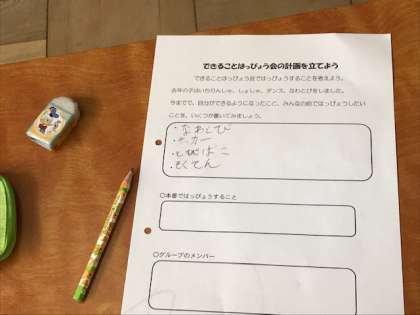 できることはっぴょう会の計画を立てよう
できることはっぴょう会ではっぴょうすることを考えよう。
去年の子はいちりんしゃ、しょしゃ、ダンス、なわとびをしました。
今までで、自分ができるようになったこと、みんなの前ではっぴょうしたい
ことを、いくつか書いてみましょう。
・なわとび
・サッカー
・とびばこ
・そくてん
○本番ではっぴょうすること
○グループのメンバー